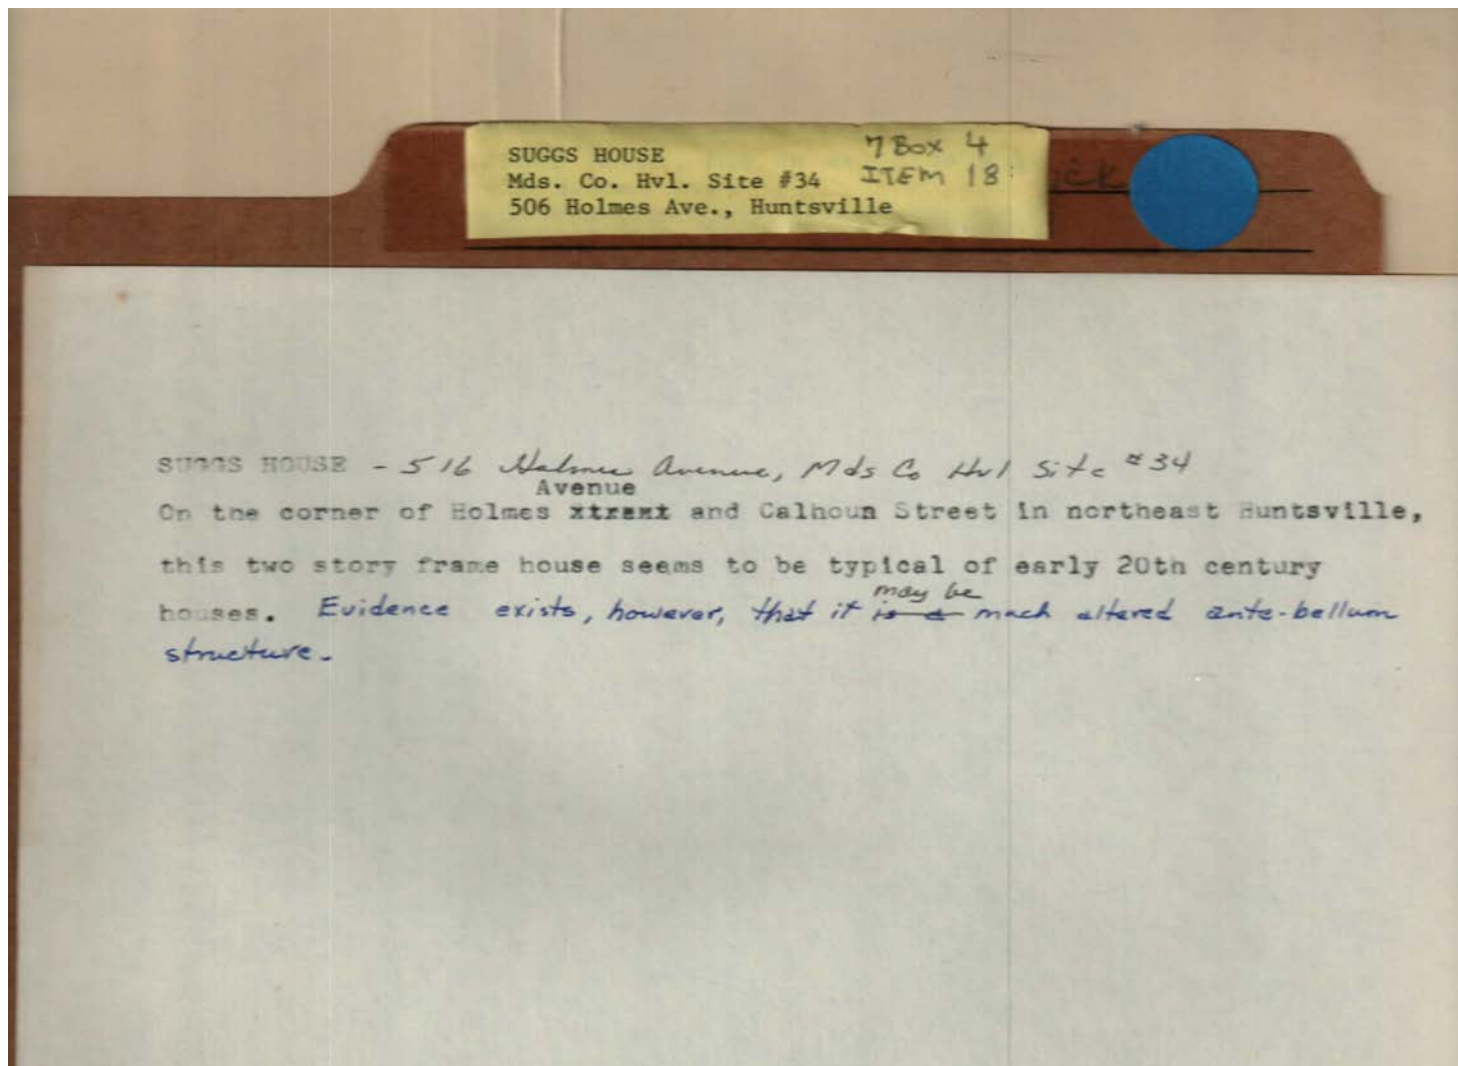 SUGGS HOUSE 7 Box 4
Mds. Co. Hvl. Site #34 ITEM 18
506 Holmes Ave., Huntsville
SUGGS HOUSE - 516 Holmes Avenue, Mds Co Hvl Site #34
Avenue
On the corner of Holmes xtreet and Calhoun Street in northeast Huntsville,
this two story frame house seems to be typical of early 20th century
may be
houses. Evidence exists, however, that it is a much altered ante-bellum
structure.